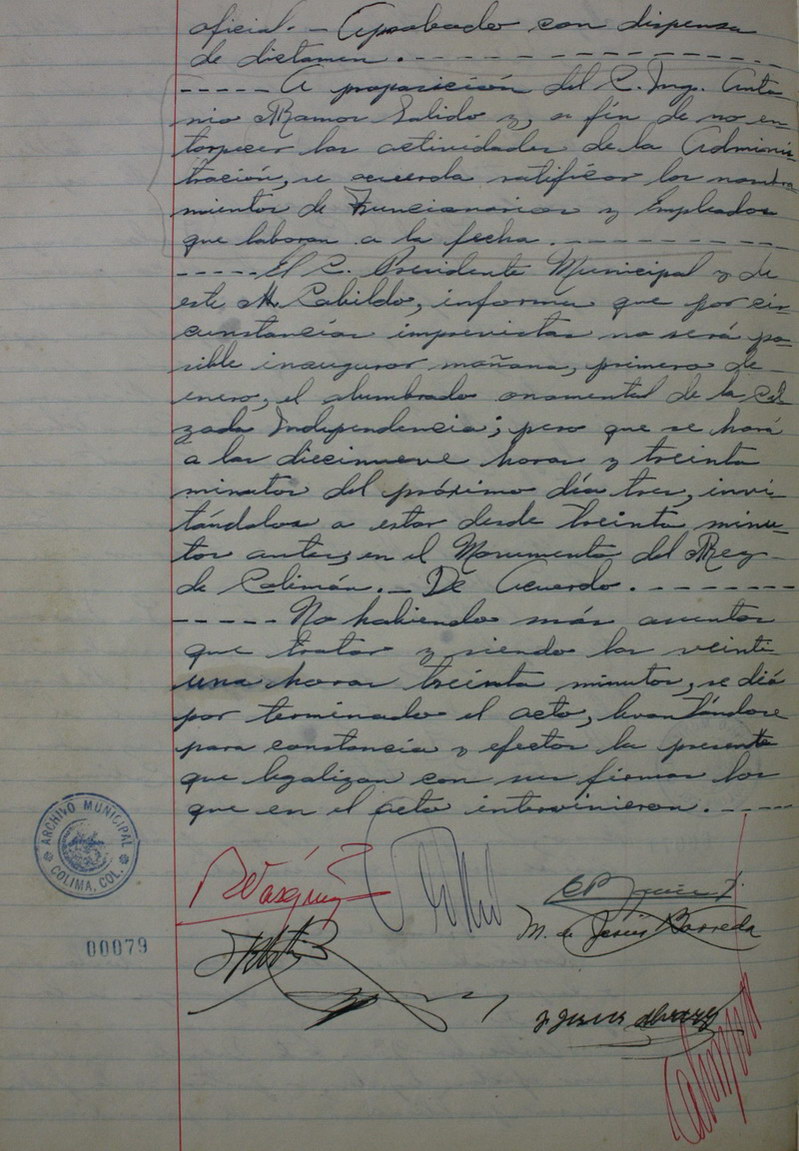 oficial. - Aprobado con dispensa
de dictamen. - - - - - - - - - - - -
- - - - - A proposición del C. Ing. Anto-
nio Ramos Salido y, a fin de no en-
torpecer las actividades de la Adminis-
tración, se acuerda ratificar los nombra-
mientos de Funcionarios y Empleados
que laboran a la fecha. - - - - - - - -
- - - - - El C. Presidente Municipal y de
este H. Cabildo, informa que por cir-
cunstancias imprevistas no será po-
sible inaugurar mañana, primero de
enero, el alumbrado ornamental de la Cal-
zada Independencia; pero que se hará
a las diecinueve horas y treinta
minutos del próximo día tres, invi-
tándolos a estar desde treinta minu-
tos antes, en el Monumento del Rey
de Colimán. - De Acuerdo. - - - - - - -
- - - - - No habiendo más asuntos
que tratar y siendo las veinti
una horas treinta minutos, se dió
por terminado el acto, levantándose
para constancia y efectos la presente
que legalizan con sus firmas los
que en el acto intervinieron. - - - -
ARCHIVO MUNICIPAL
COLIMA, COL.
Vásquez
M. de Jesús Barreda
00079
J. Jesus Alvarez